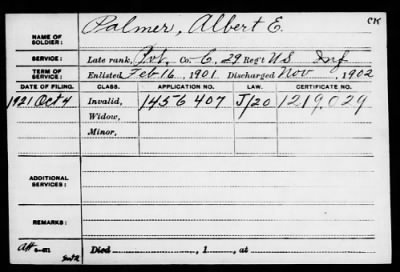 CK
NAME OF SOLDIER: Palmer, Albert E.
SERVICE: Late rank, Pvt. Co. C, 29 Reg't US Inf
TERM OF SERVICE: Enlisted Feb 16, 1901. Discharged Nov , 1902
DATE OF FILING. CLASS. APPLICATION NO. LAW. CERTIFICATE NO.
1921 Oct 4 Invalid, 1456 407 J/20 1219,029
Widow,
Minor,
ADDITIONAL SERVICES:
REMARKS:
Att Died , 1 , at